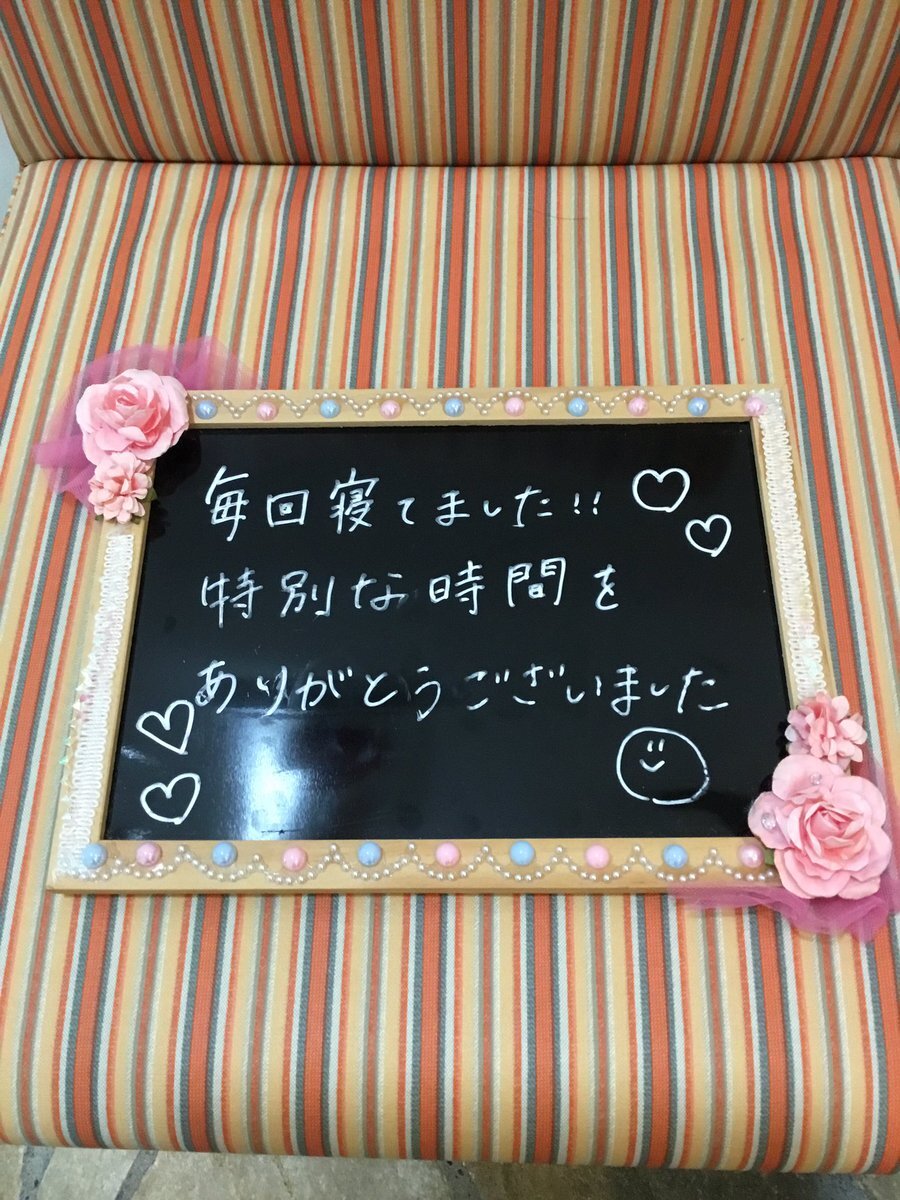 毎回寝てました!!
特別な時間を
ありがとうございました